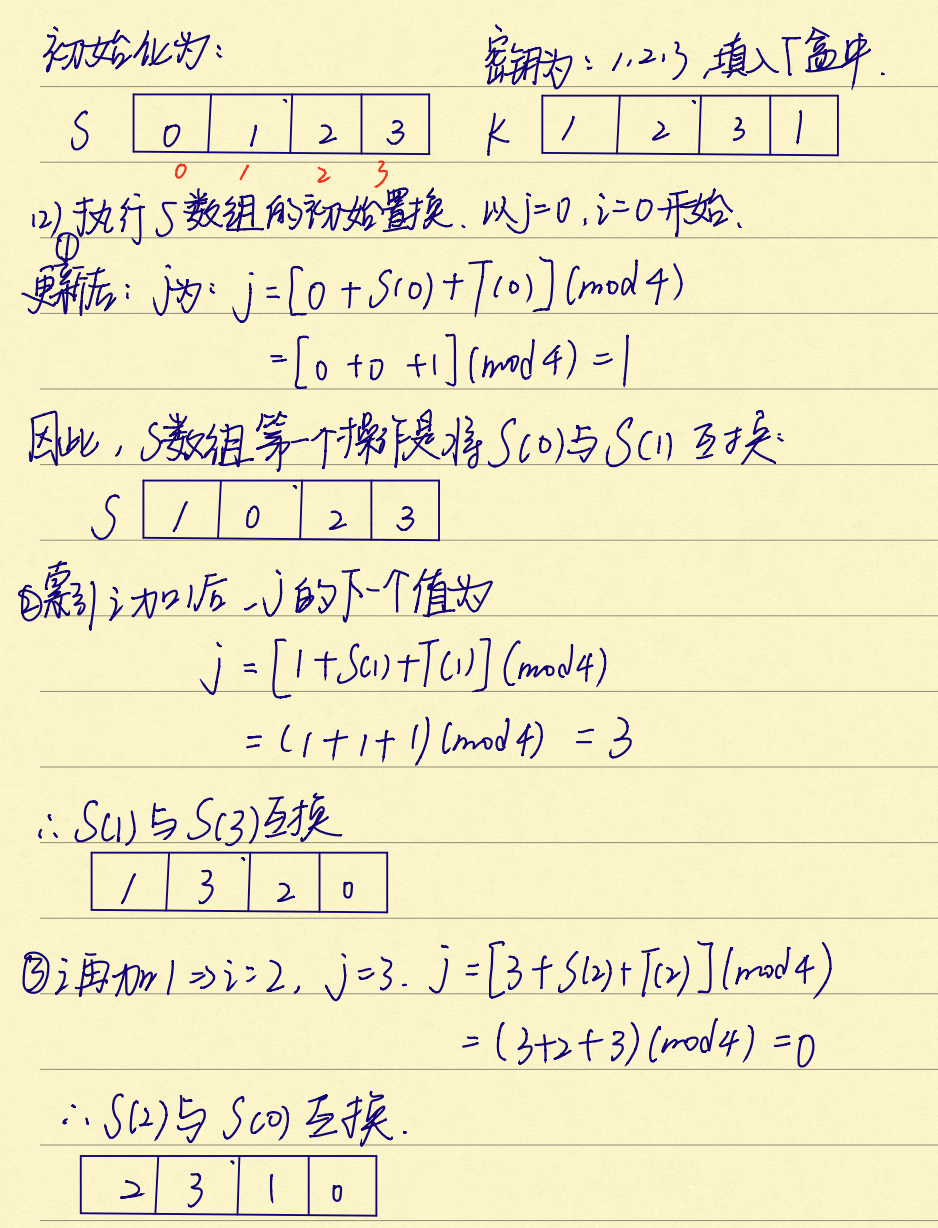 初始化为: 密钥为: 1,2,3 填入T盒中.
S 0 1 2 3 K 1 2 3 1
0 1 2 3
(2) 执行S数组的初始置换. 以j=0, i=0开始.
①
更新后: j为: j=[0+S(0)+T(0)](mod 4)
=[0+0+1](mod 4)=1
因此, S数组第一个操作是将S(0)与S(1)互换:
S 1 0 2 3
②索引i加1后, j的下一个值为
j=[1+S(1)+T(1)](mod4)
=(1+1+1)(mod4) = 3
∴ S(1)与S(3)互换
1 3 2 0
③i再加1⇒i=2, j=3. j=[3+S(2)+T(2)](mod 4)
=(3+2+3)(mod4)=0
∴ S(2)与S(0)互换.
2 3 1 0